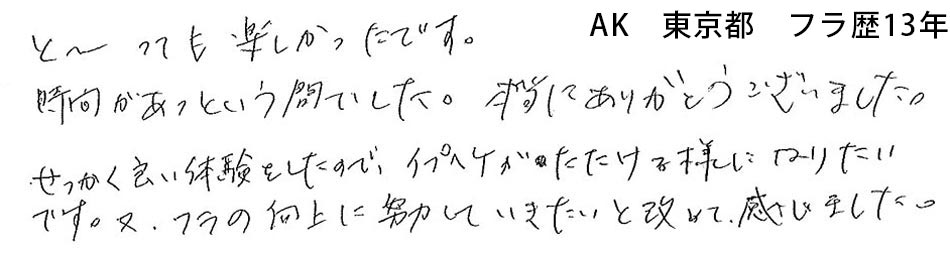 AK 東京都 フラ歴13年
と〜っても楽しかったです。
時間があっという間でした。本当にありがとうございました。
せっかく良い体験をしたので、イプヘケがたたける様になりたい
です。又、フラの向上に努力していきたいと改めて感じました。